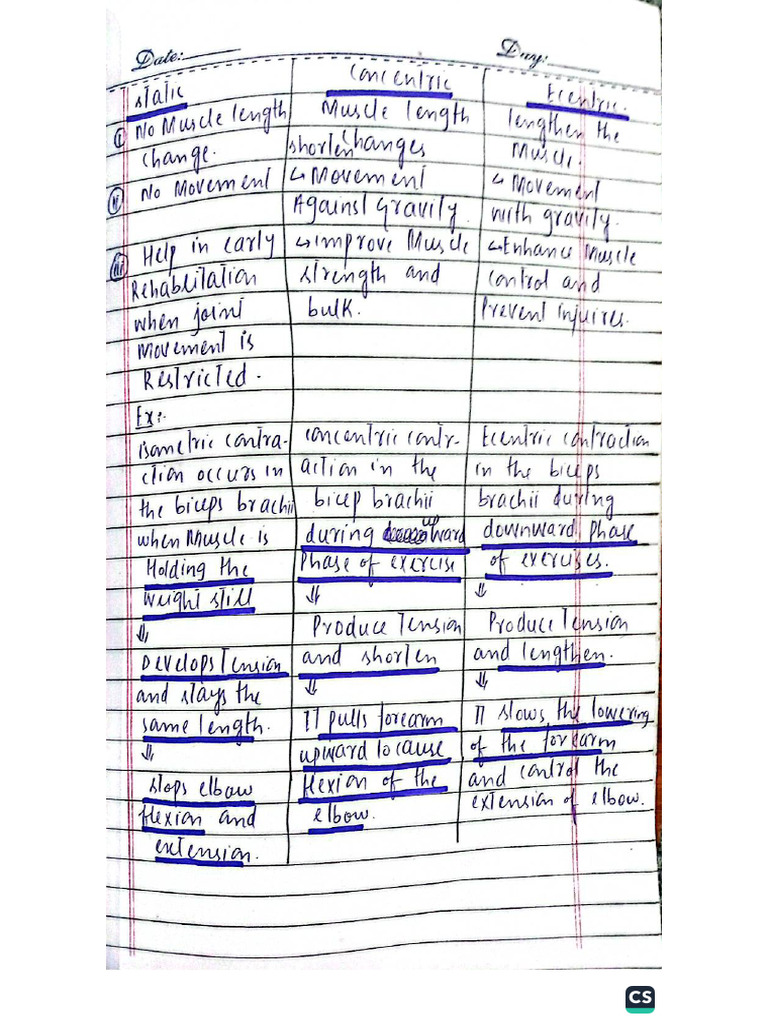 Date:
Day:
Static
(i) No Muscle length
change.
(ii) No Movement
(iii) Help in early
Rehablitation
when joint
Movement is
Restricted.
Ex:-
Isometric contra-
ction occurs in
the biceps brachii
when Muscle is
Holding the
weight still
⇓
Develops Tension
and stays the
same length.
⇓
stops elbow
flexion and
extension.
Concentric
Muscle length
shorten changes
↳ Movement
Against Gravity.
↳ improve Muscle
strength and
bulk.
concentric contr-
action in the
bicep brachii
during upward
Phase of exercise
⇓
Produce Tension
and shorten
⇓
It pulls forearm
upward to cause
flexion of the
elbow.
Ecentric.
lengthen the
Muscle.
↳ Movement
with gravity.
↳ Enhance Muscle
control and
Prevent injuires.
Ecentric contraction
in the biceps
brachii during
downward Phase
of exercises.
⇓
Produce Tension
and lengthen.
⇓
It slows the lowering
of the forearm
and control the
extension of elbow.
CS